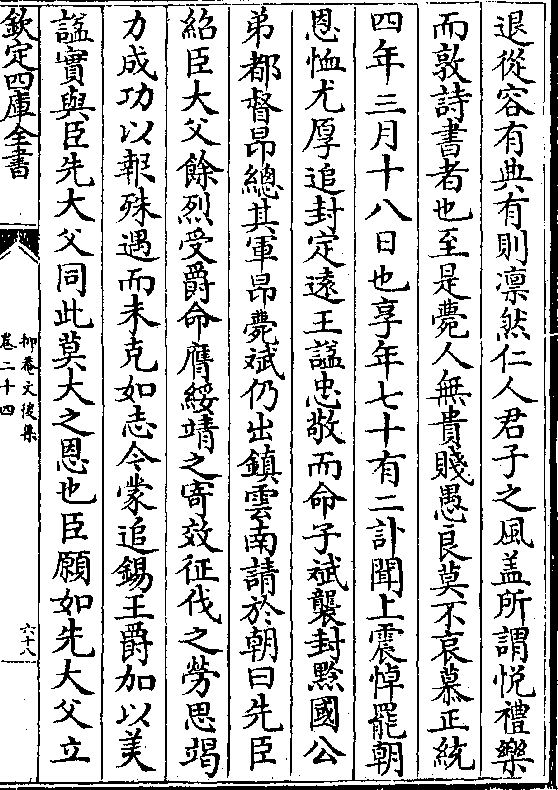 退從容有典有則凛然仁人君子之風盖所謂悦禮樂
而敦詩書者也至是薨人無貴賤愚良莫不哀慕正統
四年三月十八日也享年七十有二訃聞上震悼罷朝
恩恤尤厚追封定遠王諡忠敬而命子斌襲封黔國公
弟都督昂總其軍昂薨斌仍出鎮雲南請於朝曰先臣
紹臣大父餘烈受爵命膺綏靖之寄效征伐之勞思竭
力成功以報殊遇而未克如志今蒙追錫王爵加以美
諡實與臣先大父同此莫大之恩也臣願如先大父立
欽定四庫全書
抑菴文後集
卷二十四
六十八